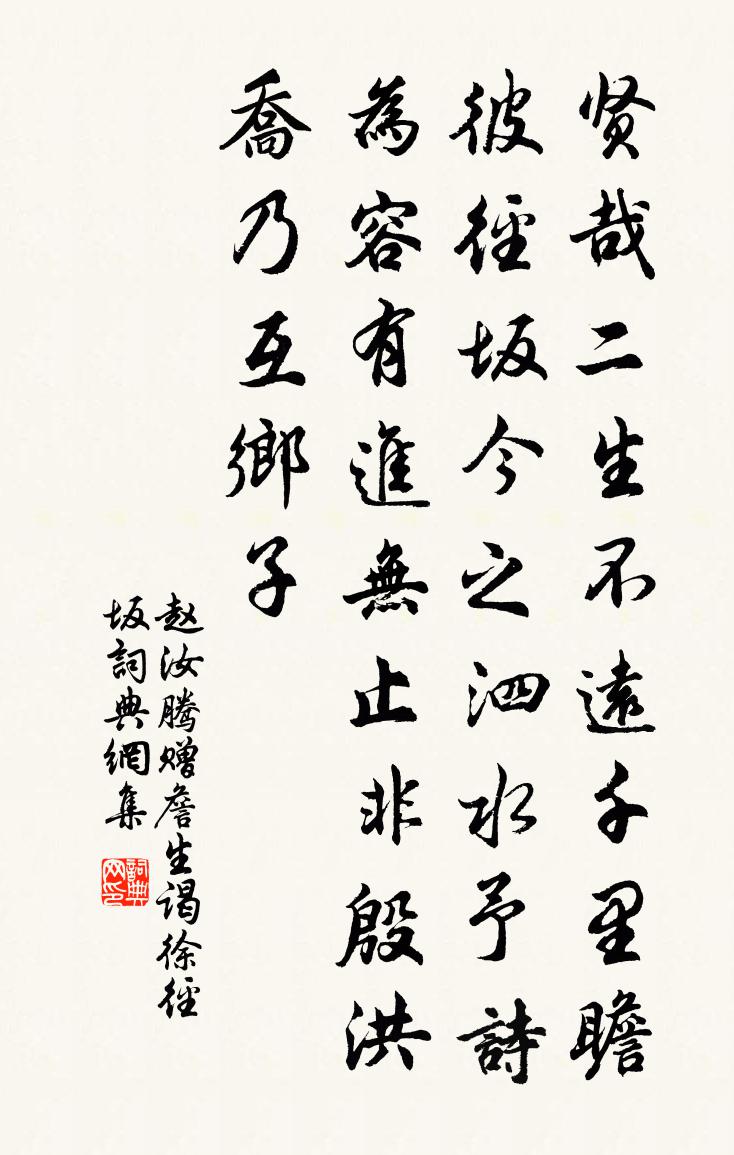 贤哉二生不遠千里瞻
彼徑坂今之泗水予詩
為容有進無止非殷洪
喬乃互鄉子
赵汝腾赠詹生谒徐徑
坂詞典網集
詞典网印